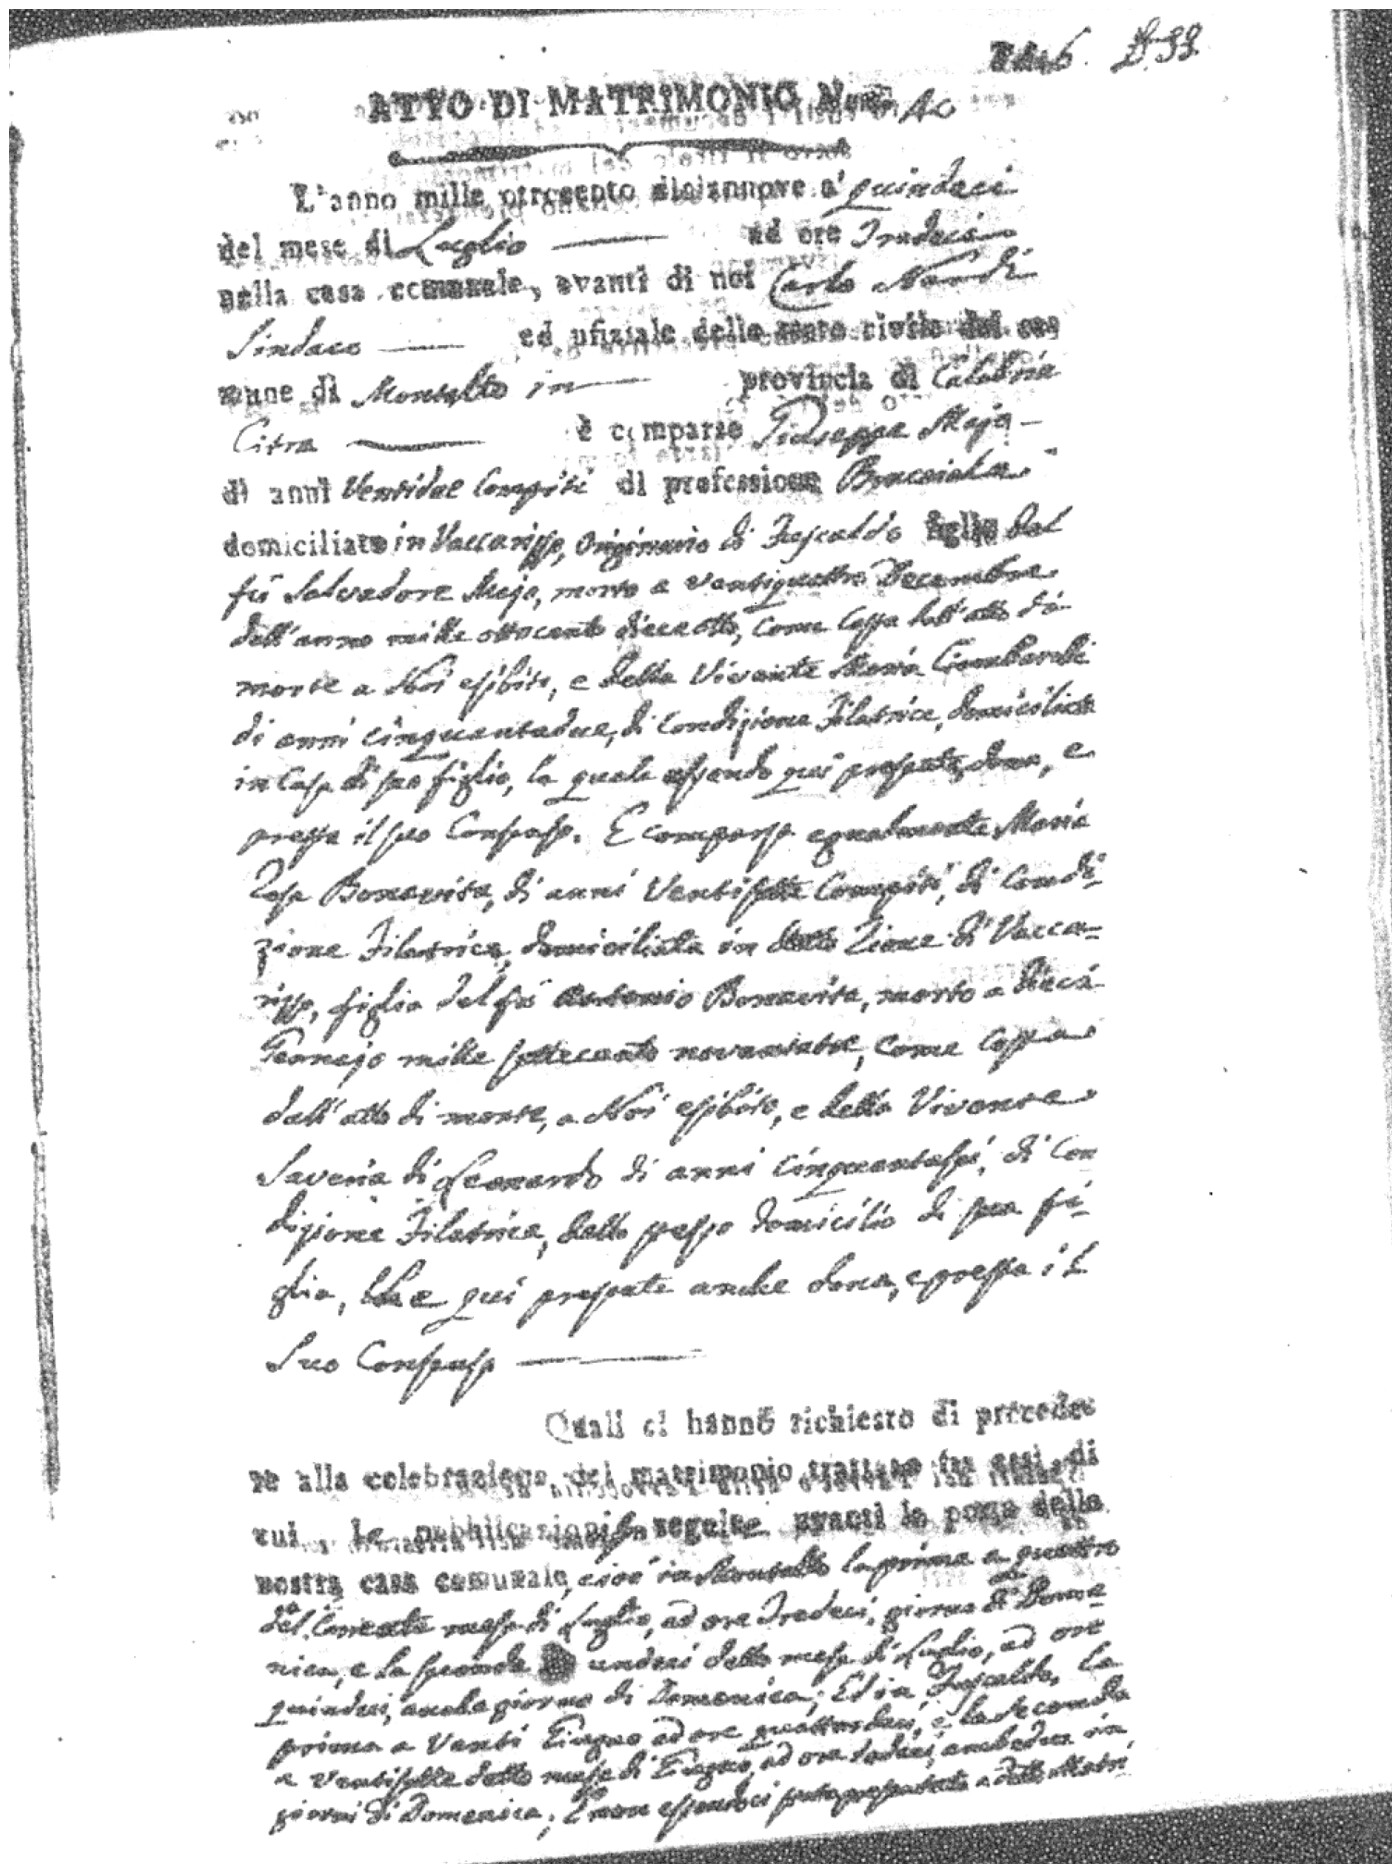 ATTO DI MATRIMONIO Num. 40
L'anno mille ottocento diciannove a' quindeci
del mese di Luglio ad ore Tredeci
nella casa comunale, avanti di noi Carlo Nardi
Sindaco ed ufiziale dello stato civile del co-
mune di Montalto in provincia di Calabria
Citra è comparso Giuseppe Maja
di anni Ventidue Compiti di professione Bracciale
domiciliato in Vaccarizzo, Originario di Fuscaldo figlio del
fù Salvadore Maja, morto a ventiquattro Decembre
dell'anno mille ottocento dieceotto, come Costa dall'atto di
morte a Noi esibito, e della Vivente Maria Ciambardi
di anni cinquantadue, di Condizione Filatrice, domiciliata
in Casa di suo figlio, la quale essendo qui presente, dona, e
presta il suo Consenso. E comparsa egualmente Maria
Rosa Bonavita, di anni Ventisette Compiti, di Condi-
zione Filatrice, domiciliata in detto Rione di Vacca-
rizzo, figlia del fù Antonio Bonavita, morto a dieci
Gennajo mille settecento novantatre, come Costa
dall'atto di morte, a Noi esibito, e della Vivente
Saveria di Leonardo di anni cinquantasei, di Con
dizione Filatrice, dello stesso domicilio di sua fi-
glia, che qui presente anche dona, e presta il
Suo Consenso
Quali ci hanno richiesto di procede-
re alla celebrazione del matrimonio trattato fra essi, di
cui le pubblicazioni seguite avanti la porta della
nostra casa comunale, cioè in Montalto la prima a quattro
del Corrente mese di Luglio, ad ore Tredeci, giorno di Dome-
nica, e la seconda undeci detto mese di Luglio, ad ore
quindeci, anche giorno di Domenica; Ed in Fuscaldo, la
prima a Venti Giugno ad ore quattordeci, e la seconda
a Ventisette detto mese di Giugno, ad ore dodeci, ambedue in
giorni di Domenica; E non essendoci stata presentata a detto Matri